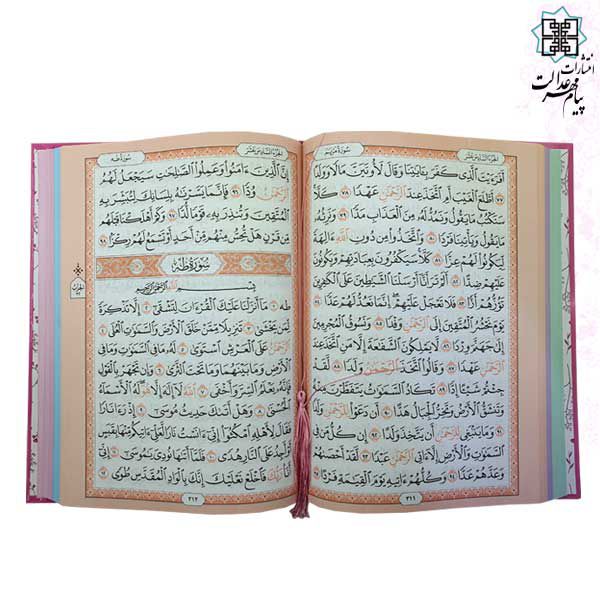 انتشارات
پیام مهر عدالت
الجزء السادس عشر
سورة مريم
أَفَرَءَيْتَ الَّذِي كَفَرَ بِآيَاتِنَا وَقَالَ لَأُوتَيَنَّ مَالًا وَوَلَدًا
٧٧ أَطَّلَعَ الْغَيْبَ أَمِ اتَّخَذَ عِندَ الرَّحْمَٰنِ عَهْدًا ٧٨ كَلَّا
سَنَكْتُبُ مَا يَقُولُ وَنَمُدُّ لَهُ مِنَ الْعَذَابِ مَدًّا ٧٩ وَنَرِثُهُ
مَا يَقُولُ وَيَأْتِينَا فَرْدًا ٨٠ وَاتَّخَذُوا مِن دُونِ اللَّهِ ءَالِهَةً
لِّيَكُونُوا لَهُمْ عِزًّا ٨١ كَلَّا سَيَكْفُرُونَ بِعِبَادَتِهِمْ وَيَكُونُونَ
عَلَيْهِمْ ضِدًّا ٨٢ أَلَمْ تَرَ أَنَّا أَرْسَلْنَا الشَّيَاطِينَ عَلَى الْكَافِرِينَ
تَؤُزُّهُمْ أَزًّا ٨٣ فَلَا تَعْجَلْ عَلَيْهِمْ إِنَّمَا نَعُدُّ لَهُمْ عَدًّا ٨٤
يَوْمَ نَحْشُرُ الْمُتَّقِينَ إِلَى الرَّحْمَٰنِ وَفْدًا ٨٥ وَنَسُوقُ الْمُجْرِمِينَ
إِلَىٰ جَهَنَّمَ وِرْدًا ٨٦ لَّا يَمْلِكُونَ الشَّفَاعَةَ إِلَّا مَنِ اتَّخَذَ عِندَ
الرَّحْمَٰنِ عَهْدًا ٨٧ وَقَالُوا اتَّخَذَ الرَّحْمَٰنُ وَلَدًا ٨٨ لَّقَدْ
جِئْتُمْ شَيْئًا إِدًّا ٨٩ تَكَادُ السَّمَاوَاتُ يَتَفَطَّرْنَ مِنْهُ
وَتَنشَقُّ الْأَرْضُ وَتَخِرُّ الْجِبَالُ هَدًّا ٩٠ أَن دَعَوْا لِلرَّحْمَٰنِ وَلَدًا
٩١ وَمَا يَنبَغِي لِلرَّحْمَٰنِ أَن يَتَّخِذَ وَلَدًا ٩٢ إِن كُلُّ مَن فِي
السَّمَاوَاتِ وَالْأَرْضِ إِلَّا ءَاتِي الرَّحْمَٰنِ عَبْدًا ٩٣ لَّقَدْ أَحْصَاهُمْ
وَعَدَّهُمْ عَدًّا ٩٤ وَكُلُّهُمْ ءَاتِيهِ يَوْمَ الْقِيَامَةِ فَرْدًا ٩٥
٣١١
الجزء السادس عشر
سورة طه
إِنَّ الَّذِينَ ءَامَنُوا وَعَمِلُوا الصَّالِحَاتِ سَيَجْعَلُ لَهُمُ
الرَّحْمَٰنُ وُدًّا ٩٦ فَإِنَّمَا يَسَّرْنَاهُ بِلِسَانِكَ لِتُبَشِّرَ بِهِ
الْمُتَّقِينَ وَتُنذِرَ بِهِ قَوْمًا لُّدًّا ٩٧ وَكَمْ أَهْلَكْنَا قَبْلَهُم
مِّن قَرْنٍ هَلْ تُحِسُّ مِنْهُم مِّنْ أَحَدٍ أَوْ تَسْمَعُ لَهُمْ رِكْزًا ٩٨
سُورَةُ طه
بِسْمِ اللَّهِ الرَّحْمَٰنِ الرَّحِيمِ
طه ١ مَا أَنزَلْنَا عَلَيْكَ الْقُرْءَانَ لِتَشْقَىٰ ٢ إِلَّا تَذْكِرَةً
لِّمَن يَخْشَىٰ ٣ تَنزِيلًا مِّمَّنْ خَلَقَ الْأَرْضَ وَالسَّمَاوَاتِ الْعُلَى ٤
الرَّحْمَٰنُ عَلَى الْعَرْشِ اسْتَوَىٰ ٥ لَهُ مَا فِي السَّمَاوَاتِ وَمَا فِي
الْأَرْضِ وَمَا بَيْنَهُمَا وَمَا تَحْتَ الثَّرَىٰ ٦ وَإِن تَجْهَرْ بِالْقَوْلِ
فَإِنَّهُ يَعْلَمُ السِّرَّ وَأَخْفَى ٧ اللَّهُ لَا إِلَٰهَ إِلَّا هُوَ لَهُ الْأَسْمَاءُ
الْحُسْنَىٰ ٨ وَهَلْ أَتَاكَ حَدِيثُ مُوسَىٰ ٩ إِذْ رَءَا نَارًا
فَقَالَ لِأَهْلِهِ امْكُثُوا إِنِّي ءَانَسْتُ نَارًا لَّعَلِّي ءَاتِيكُم مِّنْهَا بِقَبَسٍ
أَوْ أَجِدُ عَلَى النَّارِ هُدًى ١٠ فَلَمَّا أَتَاهَا نُودِيَ يَا مُوسَىٰ ١١
إِنِّي أَنَا رَبُّكَ فَاخْلَعْ نَعْلَيْكَ إِنَّكَ بِالْوَادِ الْمُقَدَّسِ طُوًى ١٢
٣١٢